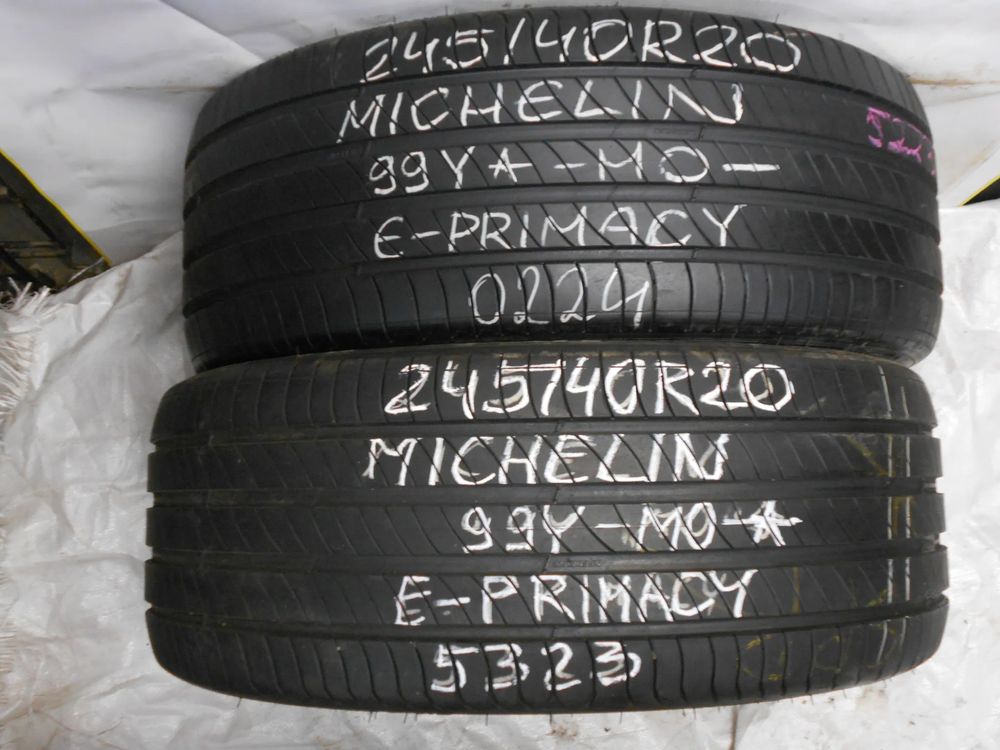 245/40R20
MICHELIN
99Y★-MO-
E-PRIMACY
0224
245/40R20
MICHELIN
99Y-MO-★
E-PRIMACY
5323